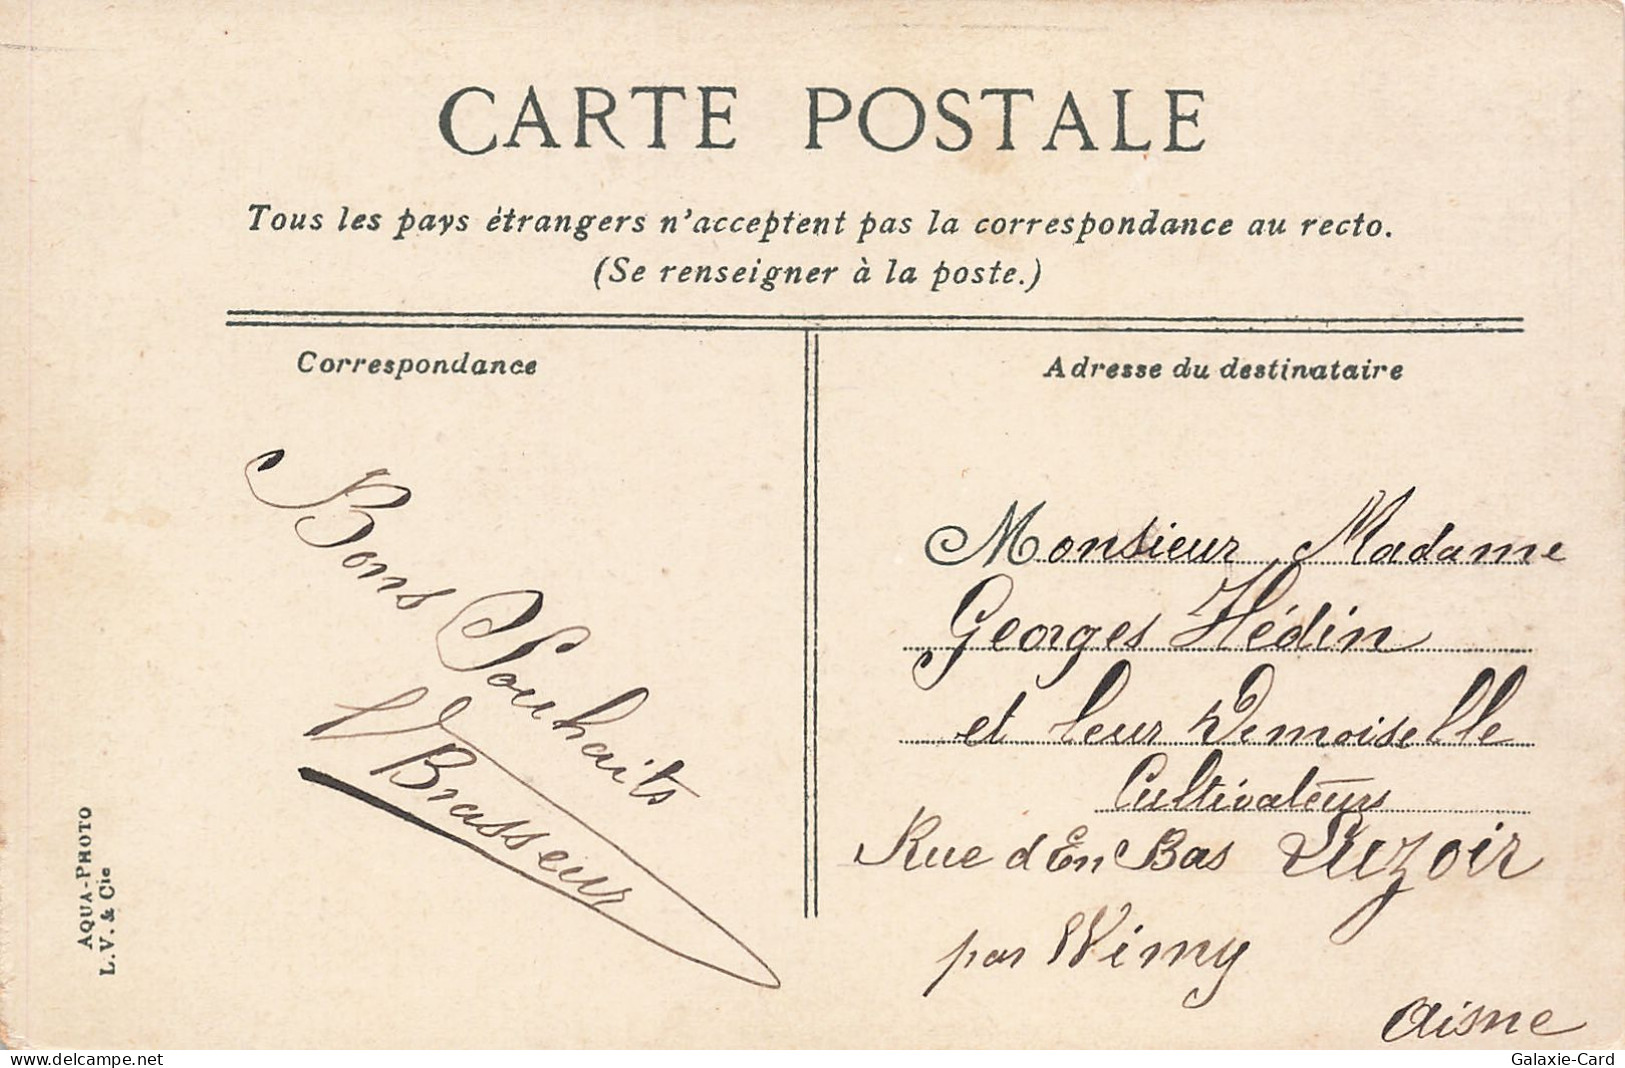 CARTE POSTALE
Tous les pays étrangers n'acceptent pas la correspondance au recto.
(Se renseigner à la poste.)
Correspondance
Bons Souhaits
V Brasseur
Adresse du destinataire
Monsieur Madame
Georges Hédin
et leur Demoiselle
Cultivateurs
Rue d'En Bas Luzoir
par Wimy
Aisne
AQUA-PHOTO
L.V. & Cie
www.delcampe.net
Galaxie-Card